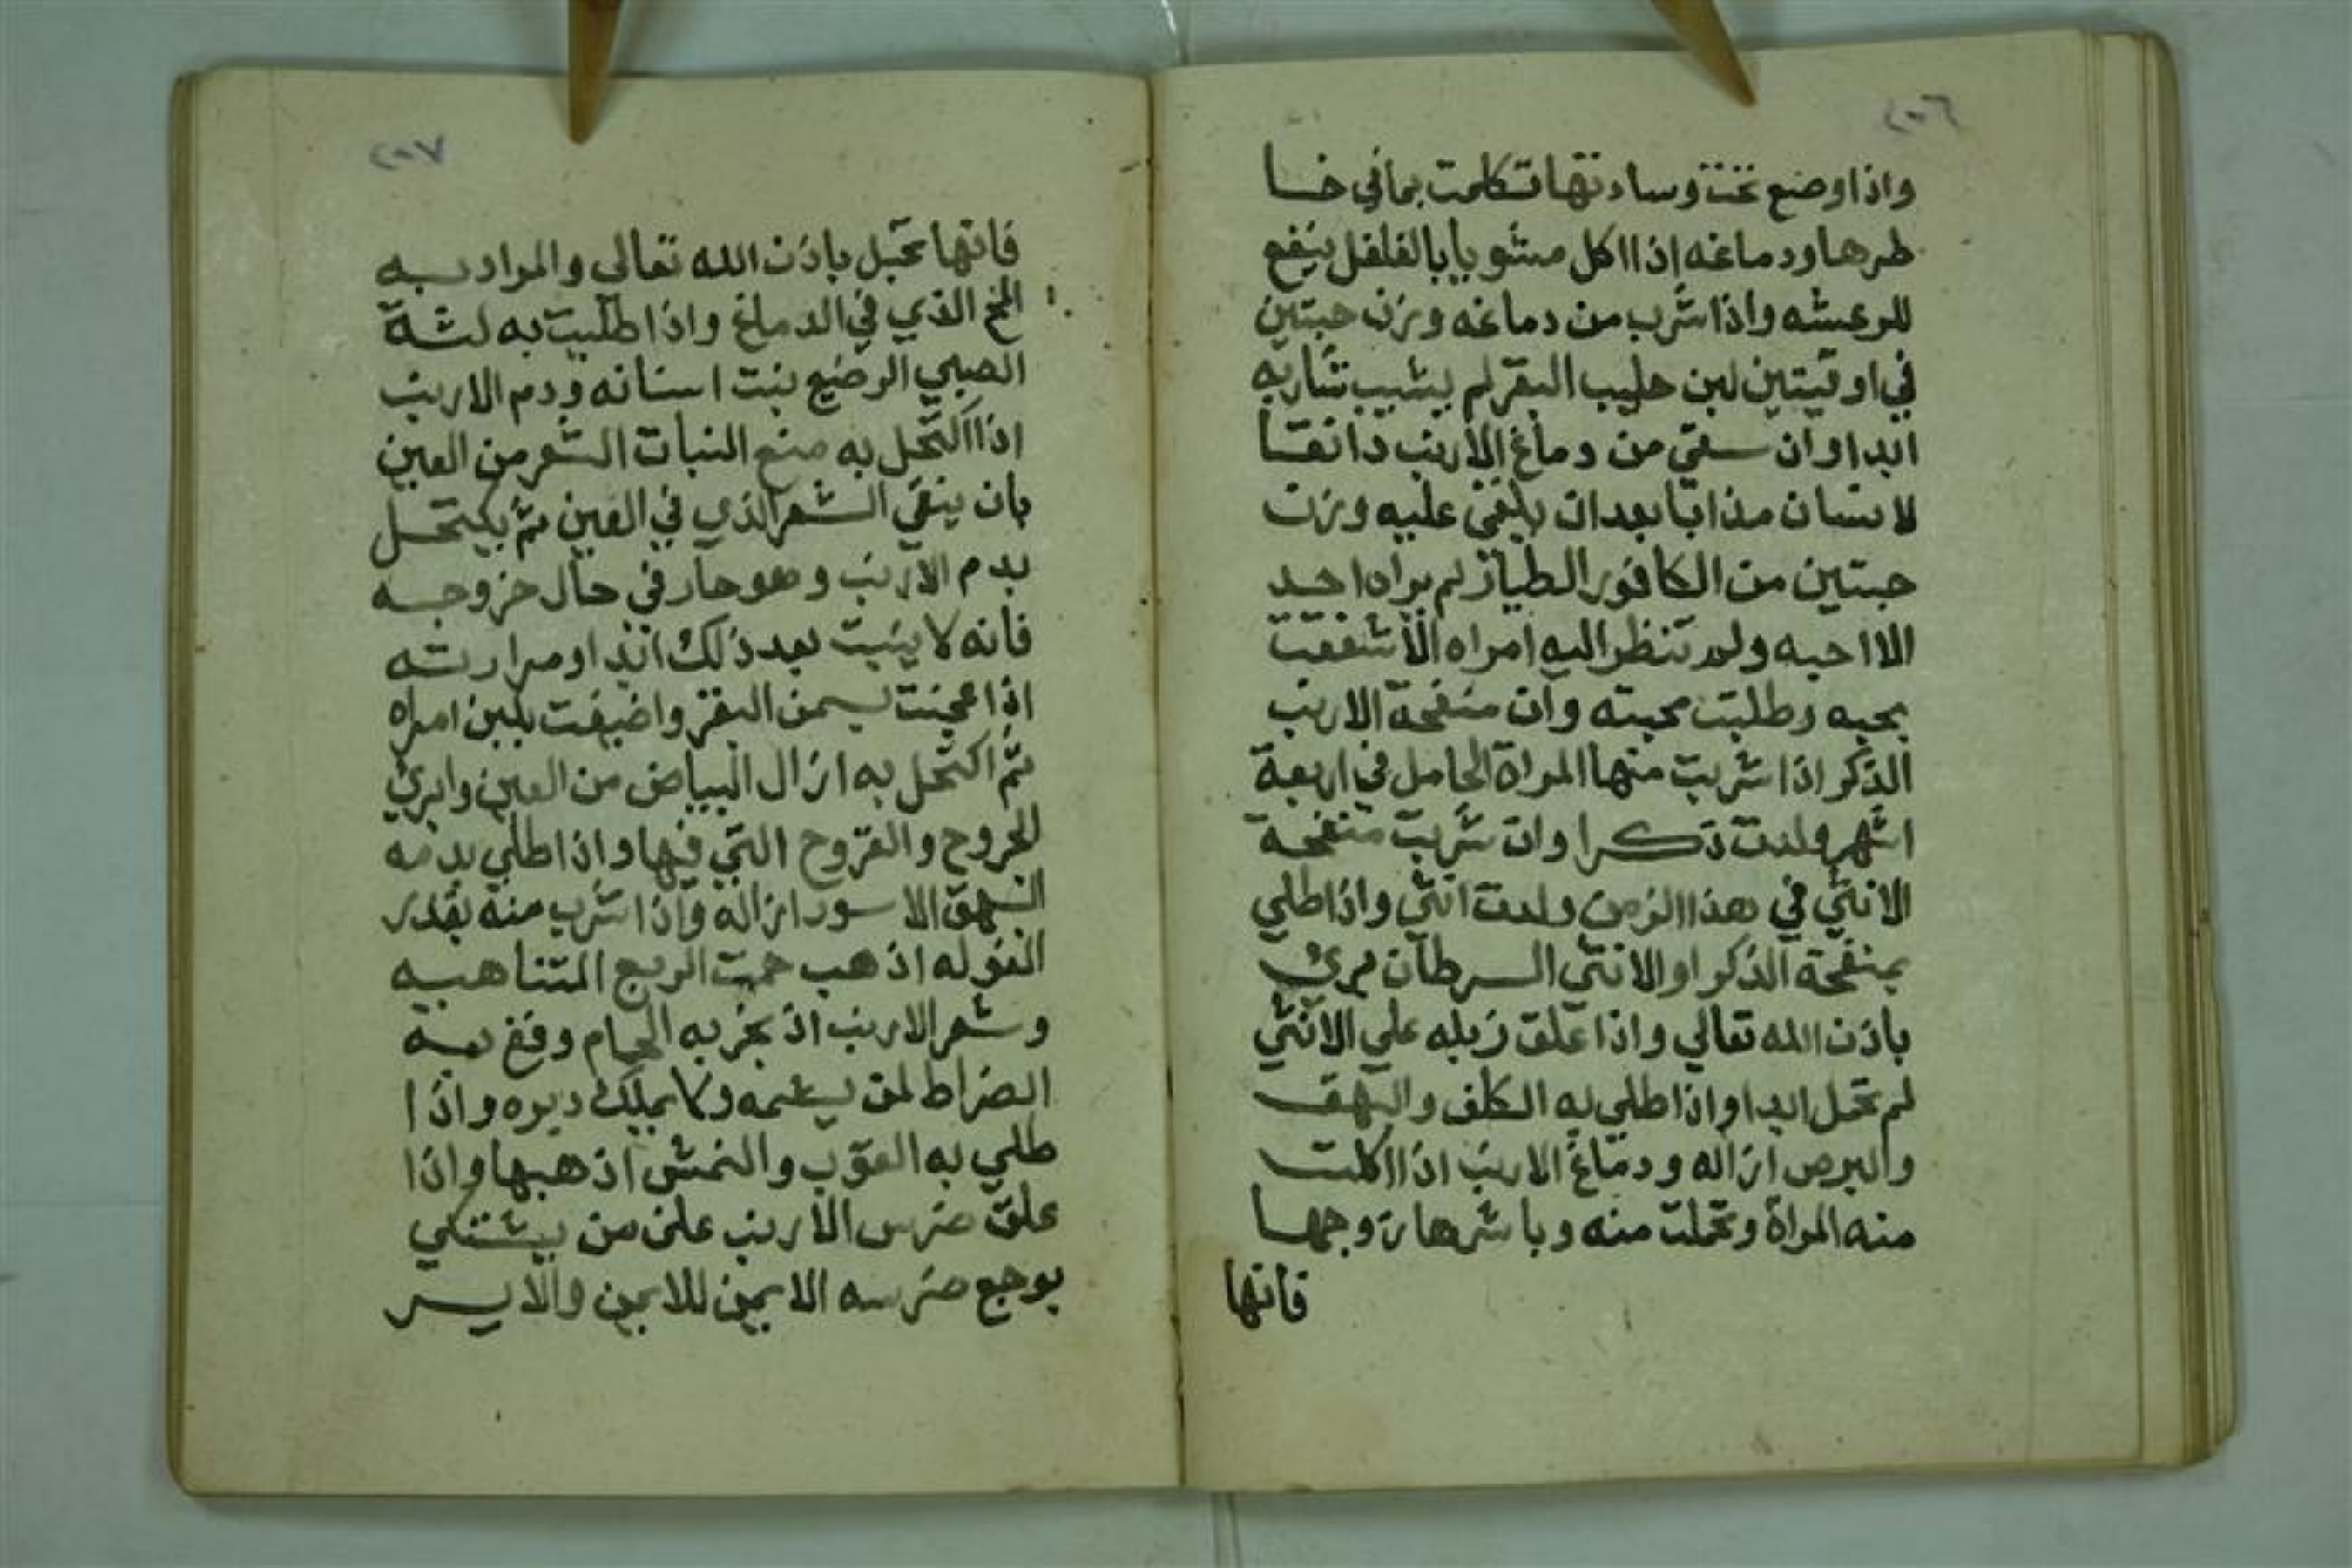 ٢٠٦
واذا وضع تحت وسادتها تكلمت بما في خا
طرها ودماغه اذا اكل مشويا بالفلفل ينفع
للرعشه واذا شرب من دماغه وزن حبتين
في اوقيتين لبن حليب البقر لم يشيب شاربه
ابدا وان سقي من دماغ الارنب دانقا
لانسان مذابا بعد ان يلقى عليه وزن
حبتين من الكافور الطيار لم يراه احد
الا احبه ولم تنظر اليه امراه الا شغفت
بحبه وطلبت محبته وان منفحة الارنب
الذكر اذا شربت منها المراة الحامل في اربعة
اشهر ولدت ذكرا وان شربت منفحة
الانثي في هذا الزمن ولدت انثي واذا طلي
بمنفحة الذكر او الانثي السرطان برئ
باذن الله تعالي واذا علق زبله علي الانثي
لم تحمل ابدا واذا طلي به الكلف والبهق
والبرص ازاله ودماغ الارنب اذا اكلت
منه المراة وتحملت منه وباشرها زوجها
فانها
٢٠٧
فانها تحبل باذن الله تعالى والمراد به
المخ الذي في الدماغ واذا طليت به لثة
الصبي الرضيع نبت اسنانه ودم الارنب
اذا اكتحل به منع النبات الشعر من العين
بان ينقي الشعر الذي في العين ثم يكتحل
بدم الارنب وهو حار في حال خروجه
فانه لا ينبت بعد ذلك ابدا ومرارته
اذا عجنت بسمن البقر واضيفت بلبن امراه
ثم اكتحل به ازال البياض من العين وابرئ
الجروح والقروح التي فيها واذا طلي بدمه
البهق الاسود ازاله واذا شرب منه بقدر
الفوله اذهب حمت الربع المتناهيه
وشعر الارنب اذ بخر به الحمام وقع به
الضراط لمن يشمه ولا يملك دبره واذا
طلي به القوب والنمش اذهبها واذا
علق ضرس الارنب على من يشتكي
بوجع ضرسه الايمن للايمن والايسر